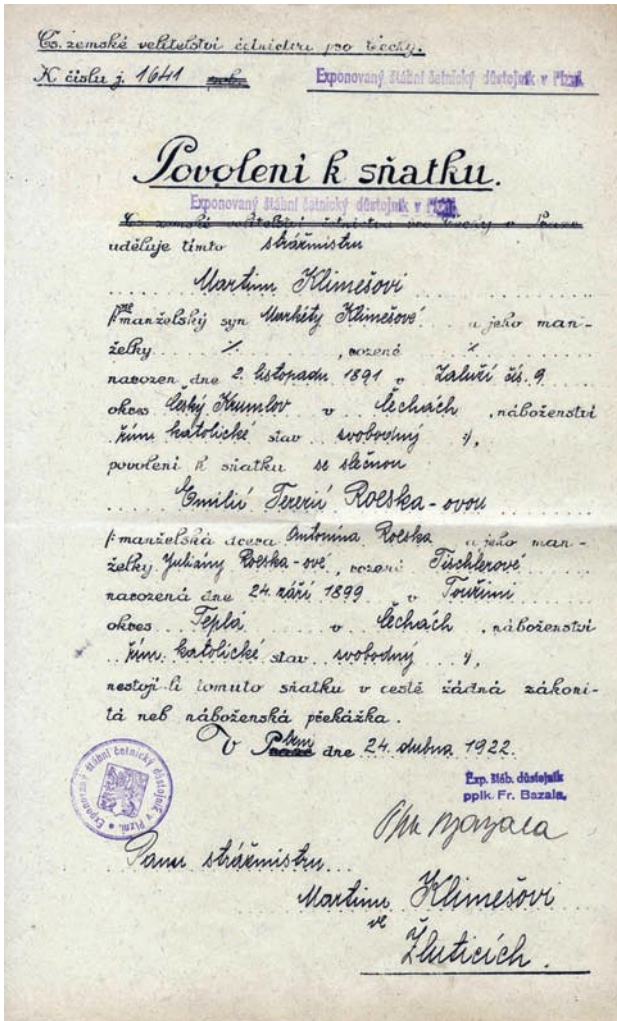 Čs. zemské velitelství četnictva pro Čechy.
K číslu j. 1641
Exponovaný štábní četnický důstojník v Plzni.
Povolení k sňatku.
Exponovaný štábní četnický důstojník v Plzni.
Čs. zemské velitelství četnictva pro Čechy v Praze
uděluje tímto strážmistru
Martinu Klimešovi
manželský syn Markéty Klimešové a jeho man-
želky ⁒ , rozené ⁒
narozen dne 2. listopadu 1891 v Záluží čís. 9
okres Český Krumlov v Čechách , náboženství
řím. katolické stav svobodný
povolení k sňatku se slečnou
Emilií Terezií Roeska-ovou
manželská dcera Antonína Roeska a jeho man-
želky Juliány Roeska-ové, rozené Tischlerové
narozená dne 24. září 1899 v Toužimi
okres Teplá v Čechách , náboženství
řím. katolické stav svobodný
nestojí-li tomuto sňatku v cestě žádná zákoni-
tá neb náboženská překážka.
V Plzni dne 24. dubna 1922.
Exponovaný štábní četnický důstojník v Plzni.
Exp. štáb. důstojník
pplk. Fr. Bazala,
Pplk Bazala
Panu strážmistru
Martinu Klimešovi
ve
Žluticích.